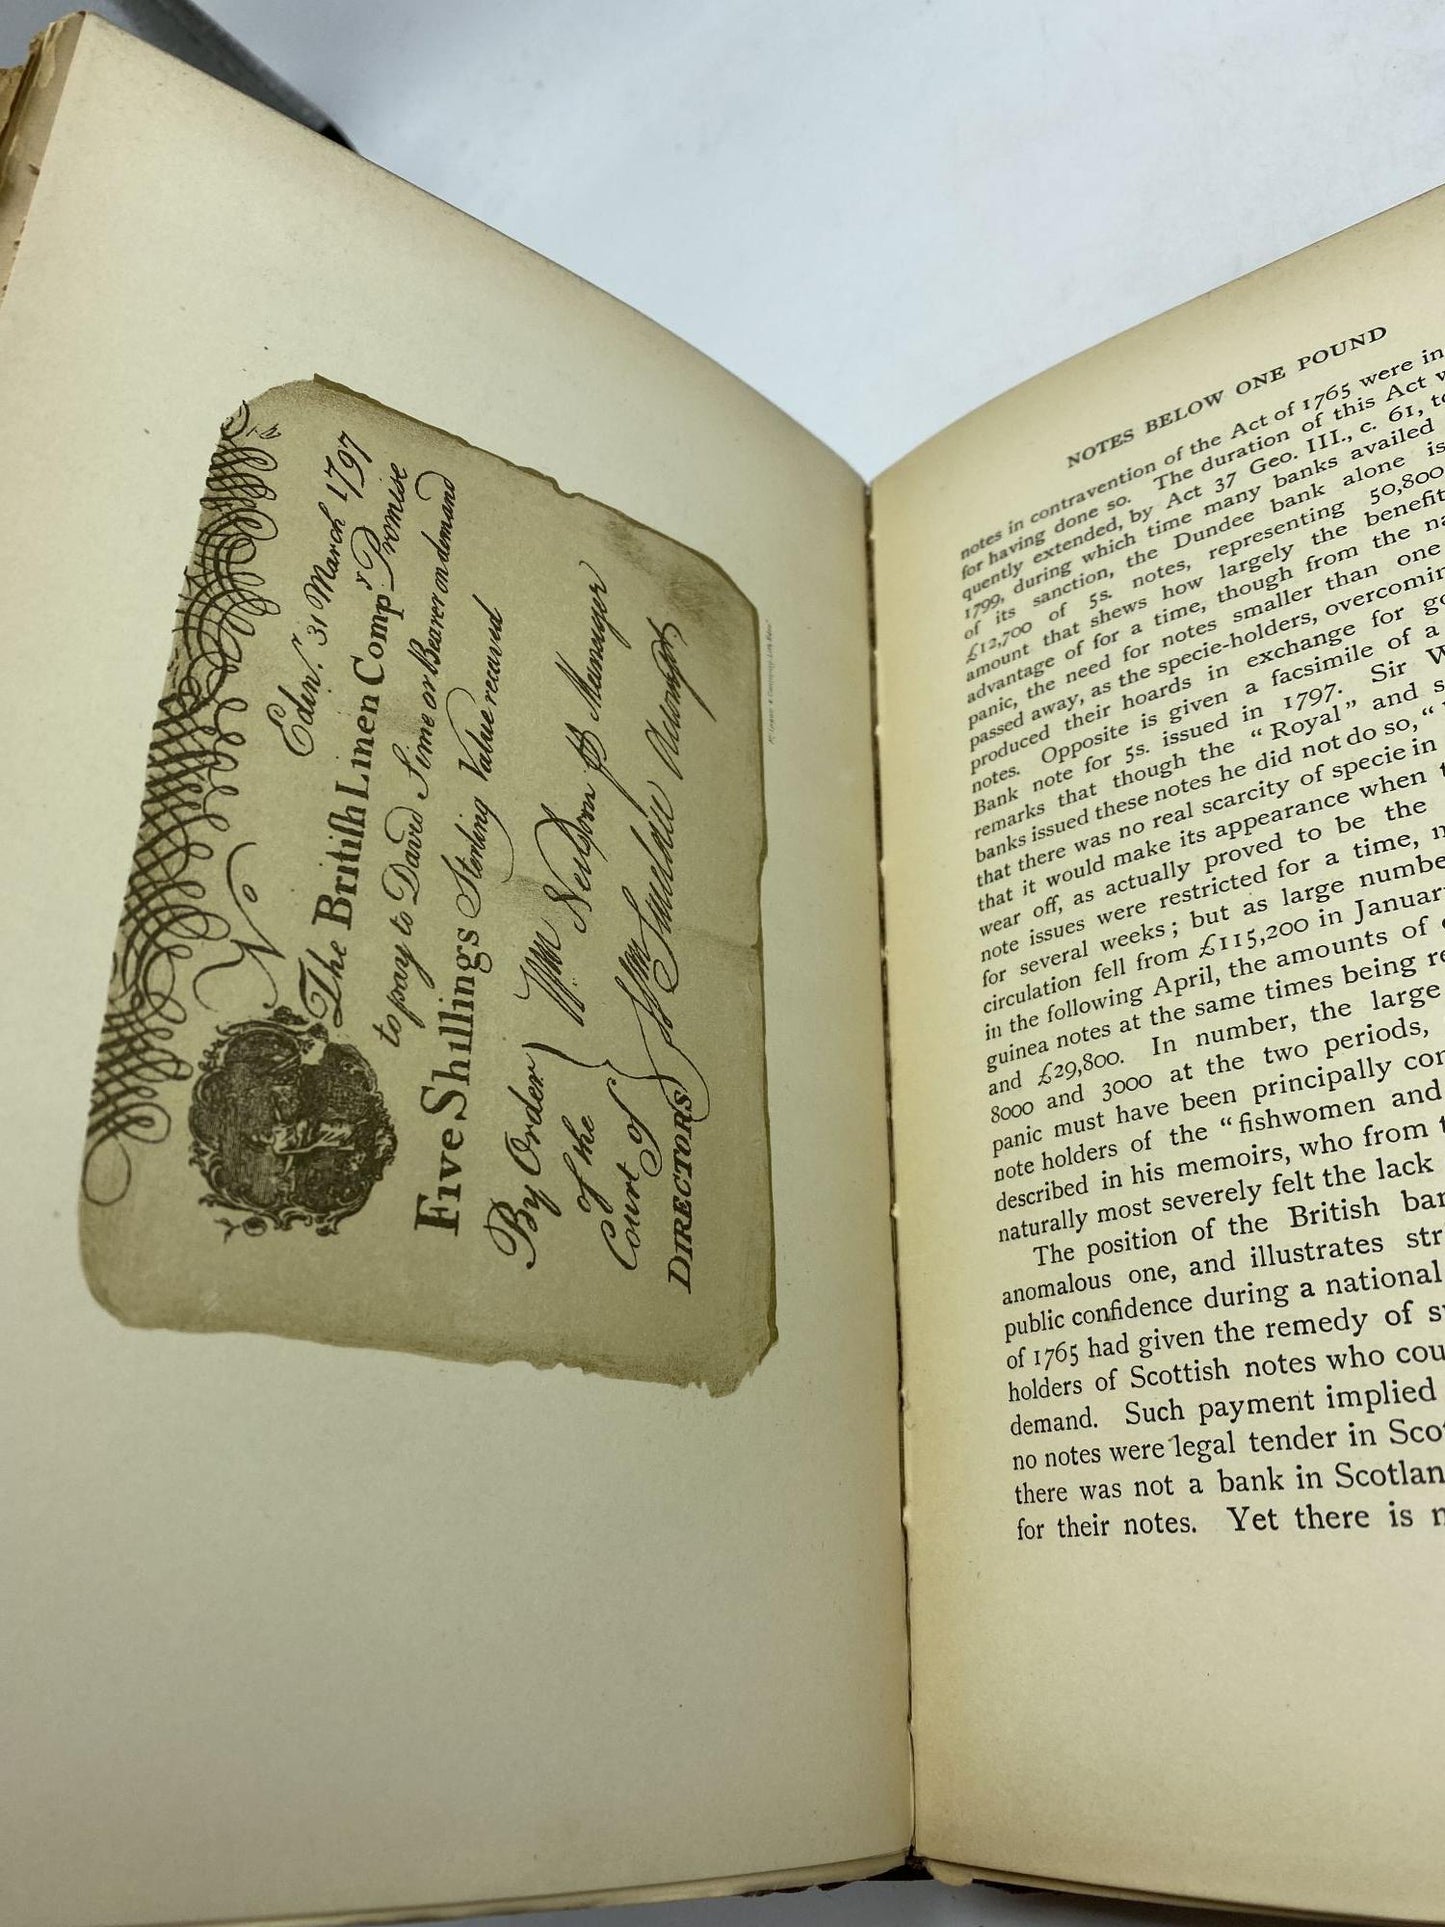 Edinr. 31 March 1797
No
The British Linen Compy. Promise
to pay to David Sime or Bearer on demand
Five Shillings Sterling Value received
By Order
of the
Court of
DIRECTORS
Manager
NOTES BELOW ONE POUND
notes in contravention of the Act of 1765 were in
for having done so. The duration of this Act
quently extended, by Act 37 Geo. III., c. 61,
1799, during which time many banks availed
of its sanction, the Dundee bank alone
£12,700 of 5s. notes, representing 50,800
amount that shews how largely the benefit
advantage of for a time, though from the
panic, the need for notes smaller than one
passed away, as the specie-holders,
produced their hoards in exchange for
notes. Opposite is given a facsimile of a
Bank note for 5s. issued in 1797. Sir
remarks that though the “Royal” and
banks issued these notes he did not do so, “
that there was no real scarcity of specie in
that it would make its appearance when
wear off, as actually proved to be the
note issues were restricted for a time,
for several weeks; but as large
circulation fell from £115,200 in
in the following April, the amounts of
guinea notes at the same times being
and £29,800. In number, the large
8000 and 3000 at the two periods,
panic must have been principally
note holders of the “fishwomen and
described in his memoirs, who from
naturally most severely felt the lack
The position of the British
anomalous one, and illustrates
public confidence during a national
of 1765 had given the remedy of
holders of Scottish notes who
demand. Such payment implied
no notes were legal tender in
there was not a bank in
for their notes. Yet there is